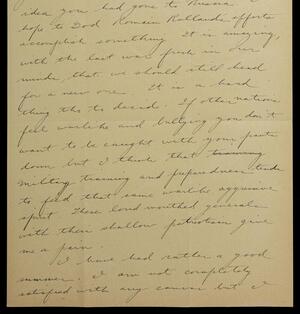 idea you had gone to Russia. I
hope to God Romain Rolland's efforts
accomplish something. It is amazing,
with the last war fresh in our
minds, that we should still head
for a new one. It is a hard
thing tho to decide. If other nations
feel warlike and bullying you don't
want to be caught with your pants
down but I think that training
military training and preparedness tends
to feed that same warlike aggressive
spirit. These loud mouthed generals
with their shallow patriotism give
me a pain.
I have had rather a good
summer. I am not completely
satisfied with any canvas but I